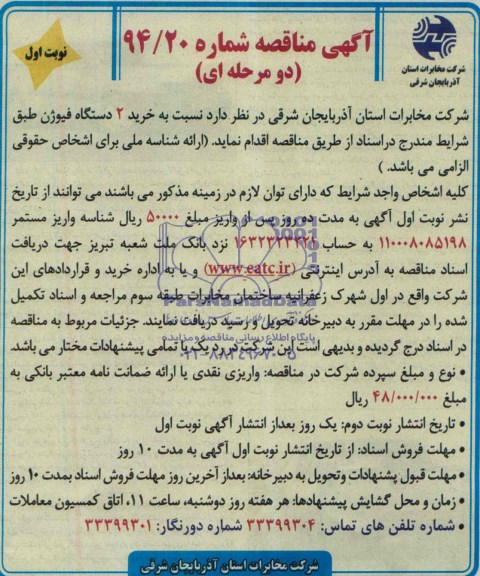 آگهی مناقصه شماره ۹۴/۲۰
(دو مرحله ای)
نوبت اول
شرکت مخابرات استان
آذربایجان شرقی
شرکت مخابرات استان آذربایجان شرقی در نظر دارد نسبت به خرید ۲ دستگاه فیوژن طبق
شرایط مندرج دراسناد از طریق مناقصه اقدام نماید. (ارائه شناسه ملی برای اشخاص حقوقی
الزامی می باشد. )
کلیه اشخاص واجد شرایط که دارای توان لازم در زمینه مذکور می باشند می توانند از تاریخ
نشر نوبت اول آگهی به مدت ده روز پس از واریز مبلغ ۵۰۰۰۰ ریال شناسه واریز مستمر
۱۱۰۰۰۸۰۸۵۱۹۸ به حساب نزد بانک ملت شعبه تبریز جهت دریافت
اسناد مناقصه به آدرس اینترنتی (www.eatc.ir) و یا به اداره خرید و قراردادهای این
شرکت واقع در اول شهرک زعفرانیه ساختمان مخابرات طبقه سوم مراجعه و اسناد تکمیل
شده را در مهلت مقرر به دبیرخانه تحویل و رسید دریافت نمایند. جزئیات مربوط به مناقصه
در اسناد درج گردیده و بدیهی است این شرکت در رد یک یا تمامی پیشنهادات مختار می باشد.
• نوع و مبلغ سپرده شرکت در مناقصه: واریزی نقدی یا ارائه ضمانت نامه معتبر بانکی به
مبلغ ۴۸/۰۰۰/۰۰۰ ریال
• تاریخ انتشار نوبت دوم: یک روز بعداز انتشار آگهی نوبت اول
• مهلت فروش اسناد: از تاریخ انتشار نوبت اول آگهی به مدت ۱۰ روز
• مهلت قبول پشنهادات وتحویل به دبیرخانه: بعداز آخرین روز مهلت فروش اسناد بمدت ۱۰ روز
• زمان و محل گشایش پیشنهادها: هر هفته روز دوشنبه، ساعت ۱۱، اتاق کمسیون معاملات
• شماره تلفن های تماس: ۳۳۳۹۹۳۰۴ شماره دورنگار: ۳۳۳۹۹۳۰۱
شرکت مخابرات استان آذربایجان شرقی
ParsNamadData
پایگاه اطلاع رسانی مناقصه و مزایده